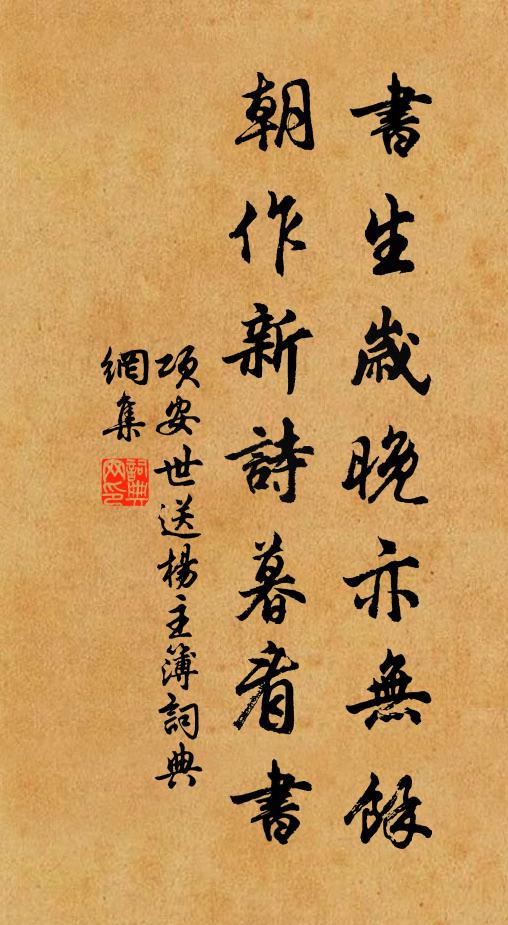 書生歲晚亦無餘
朝作新詩暮看書
項安世送楊主簿詞典
網集
詞典網印